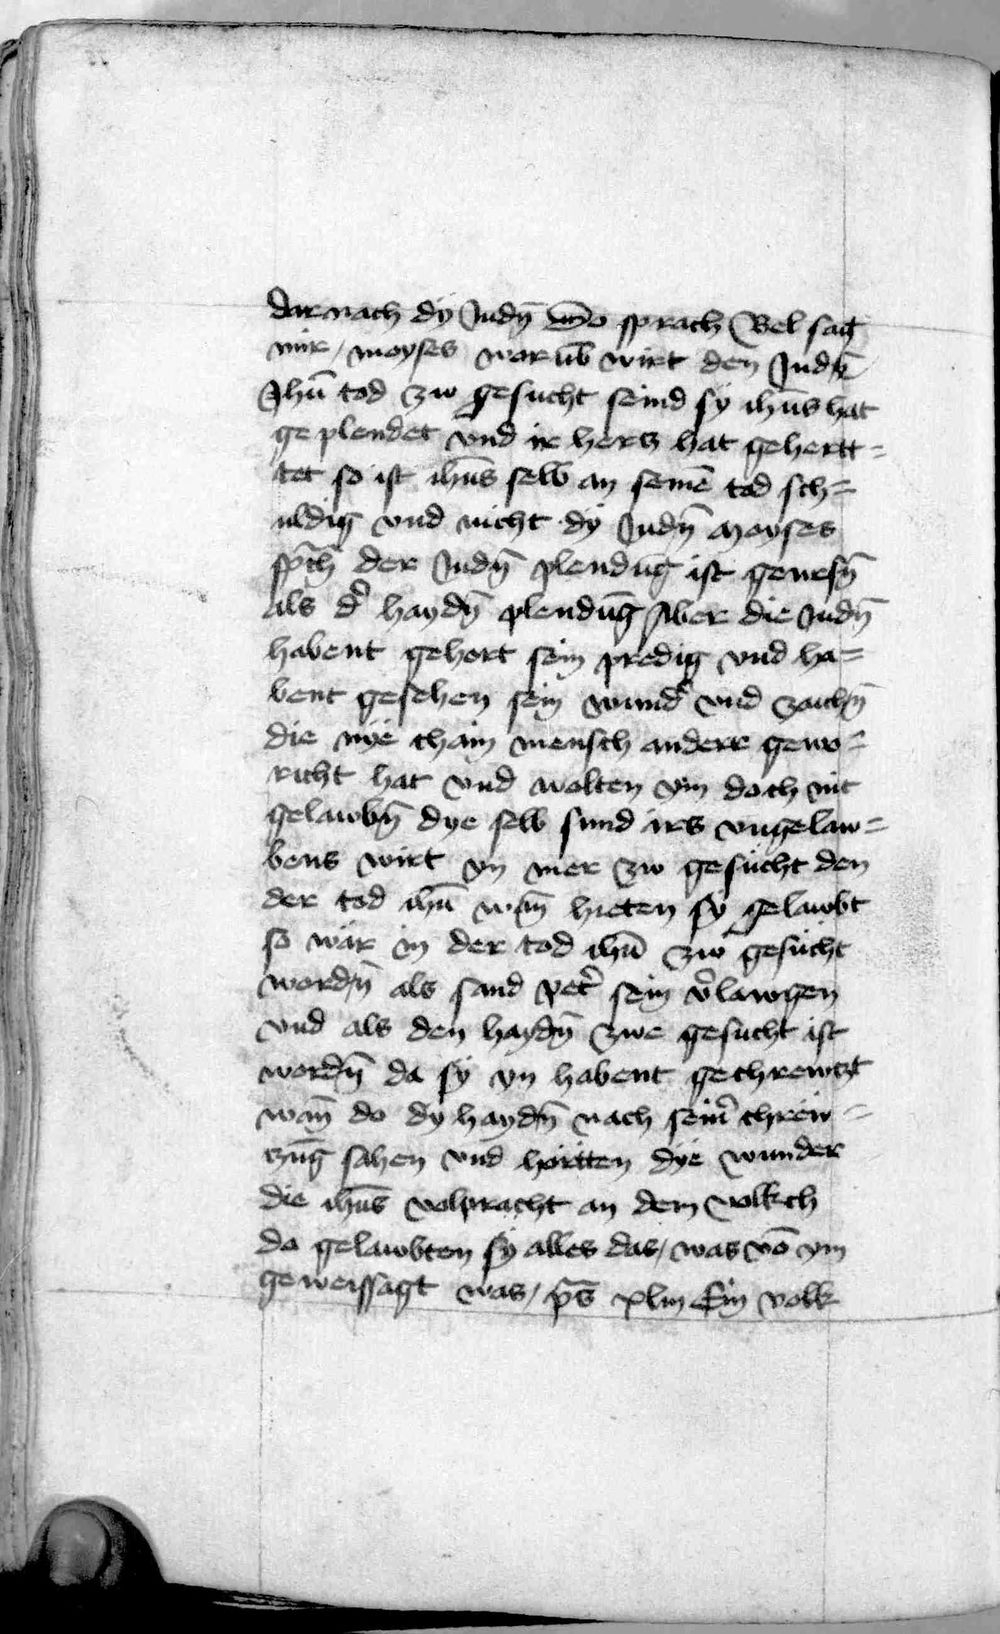 darnach dÿ Judn̄ Do sprach Bel sag
mir / moyses worūb wirt den Judn̄
Jhū tod zw gesucht seind sÿ ihūs hat
ge plendet vnd ir hercz hat gehertt=
tet so ist ihūs selb an seinē tod sch=
uldig vnd nicht dÿ Judn̄ Moyses
sp̄ch der Judn̄ plendūg ist gewesn̄
als d' haydn̄ plendūg Aber die Judn̄
habent gehort sein predig vnd ha=
bent gesehen sein wund' vnd zaichn̄
die nÿe chain mensch anderr gewo=
richt hat vnd wolten ym doch nit
gelawbn̄ dye selb sund irs vngelaw=
bens wirt yn mer zw gesucht den
der tod ihū wan̄ hieten sÿ gelawbt
so wär in der tod ihū zw gesucht
wordn̄ als sand pet' sein v'lawgen
vnd als den haydn̄ zwe gesucht ist
wordn̄ da sÿ yn habent gechrewczt
wan̄ do dy haydn̄ nach sein' chrew=
czūg sahen vnd hortten dye wunder
die ihūs volpracht an dem volkch
do gelawbten sÿ alles das / was vō ym
geweissagt was / p̄s xlm Ein volk